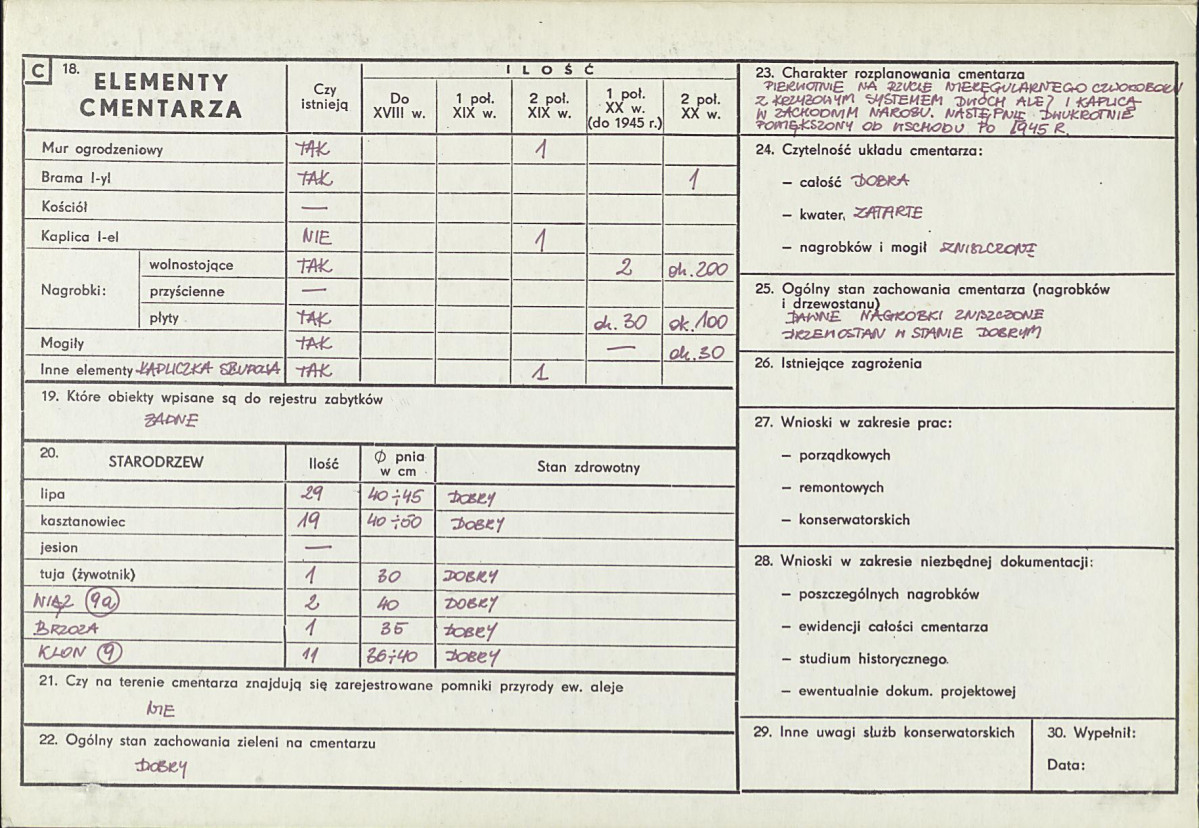 C 18. ELEMENTY CMENTARZA
Czy istnieją
ILOŚĆ
Do XVIII w.
1 poł. XIX w.
2 poł. XIX w.
1 poł. XX w. (do 1945 r.)
2 poł. XX w.
Mur ogrodzeniowy TAK 1
Brama I-yl TAK 1
Kościół —
Kaplica I-el NIE 1
Nagrobki:
wolnostojące TAK 2 ok. 200
przyścienne —
płyty TAK ok. 30 ok. 100
Mogiły TAK — ok. 30
Inne elementy KAPLICZKA TAK 1
19. Które obiekty wpisane są do rejestru zabytków
ŻADNE
20. STARODRZEW Ilość Ø pnia w cm Stan zdrowotny
lipa 29 40÷45 DOBRY
kasztanowiec 19 40÷50 DOBRY
jesion —
tuja (żywotnik) 1 30 DOBRY
WIĄZ (9a) 2 40 DOBRY
BRZOZA 1 35 DOBRY
KLON (9) 11 36÷40 DOBRY
21. Czy na terenie cmentarza znajdują się zarejestrowane pomniki przyrody ew. aleje
NIE
22. Ogólny stan zachowania zieleni na cmentarzu
DOBRY
23. Charakter rozplanowania cmentarza
PIERWOTNIE NA RZUCIE NIEREGULARNEGO CZWOROBOKU
Z KRZYŻOWYM SYSTEMEM DWÓCH ALEJ I KAPLICĄ
W ZACHODNIM NAROŻU. NASTĘPNIE DWUKROTNIE
POWIĘKSZONY OD WSCHODU PO 1945 R.
24. Czytelność układu cmentarza:
– całość DOBRA
– kwater, ZATARTE
– nagrobków i mogił ZNISZCZONE
25. Ogólny stan zachowania cmentarza (nagrobków
i drzewostanu)
DAWNE NAGROBKI ZNISZCZONE
DRZEWOSTAN W STANIE DOBRYM
26. Istniejące zagrożenia
27. Wnioski w zakresie prac:
– porządkowych
– remontowych
– konserwatorskich
28. Wnioski w zakresie niezbędnej dokumentacji:
– poszczególnych nagrobków
– ewidencji całości cmentarza
– studium historycznego.
– ewentualnie dokum. projektowej
29. Inne uwagi służb konserwatorskich
30. Wypełnił:
Data: